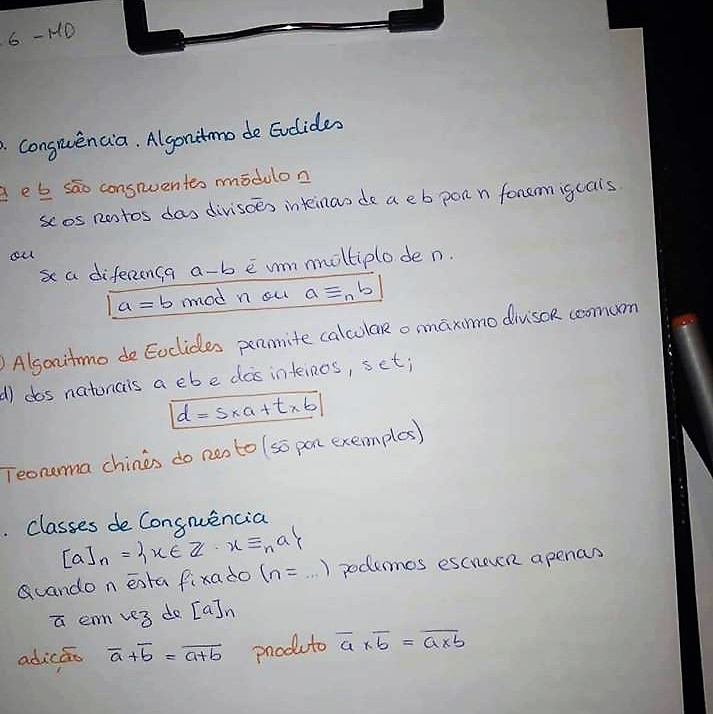 6 - MD
. Congruência. Algoritmo de Euclides
a e b são congruentes módulo n
se os restos das divisões inteiras de a e b por n forem iguais.
ou
se a diferença a-b é um múltiplo de n.
a = b mod n ou a ≡ₙ b
) Algoritmo de Euclides permite calcular o máximo divisor comum
d) dos naturais a e b e dois inteiros, s e t;
d = s×a + t×b
Teorema chinês do resto (só por exemplos)
. Classes de Congruência
[a]ₙ = {x ∈ Z . x ≡ₙ a}
Quando n ésta fixado (n = ...) podemos escrever apenas
a̅ em vez de [a]ₙ
adição a̅ + b̅ = a̅+̅b̅ produto a̅ × b̅ = a̅×̅b̅